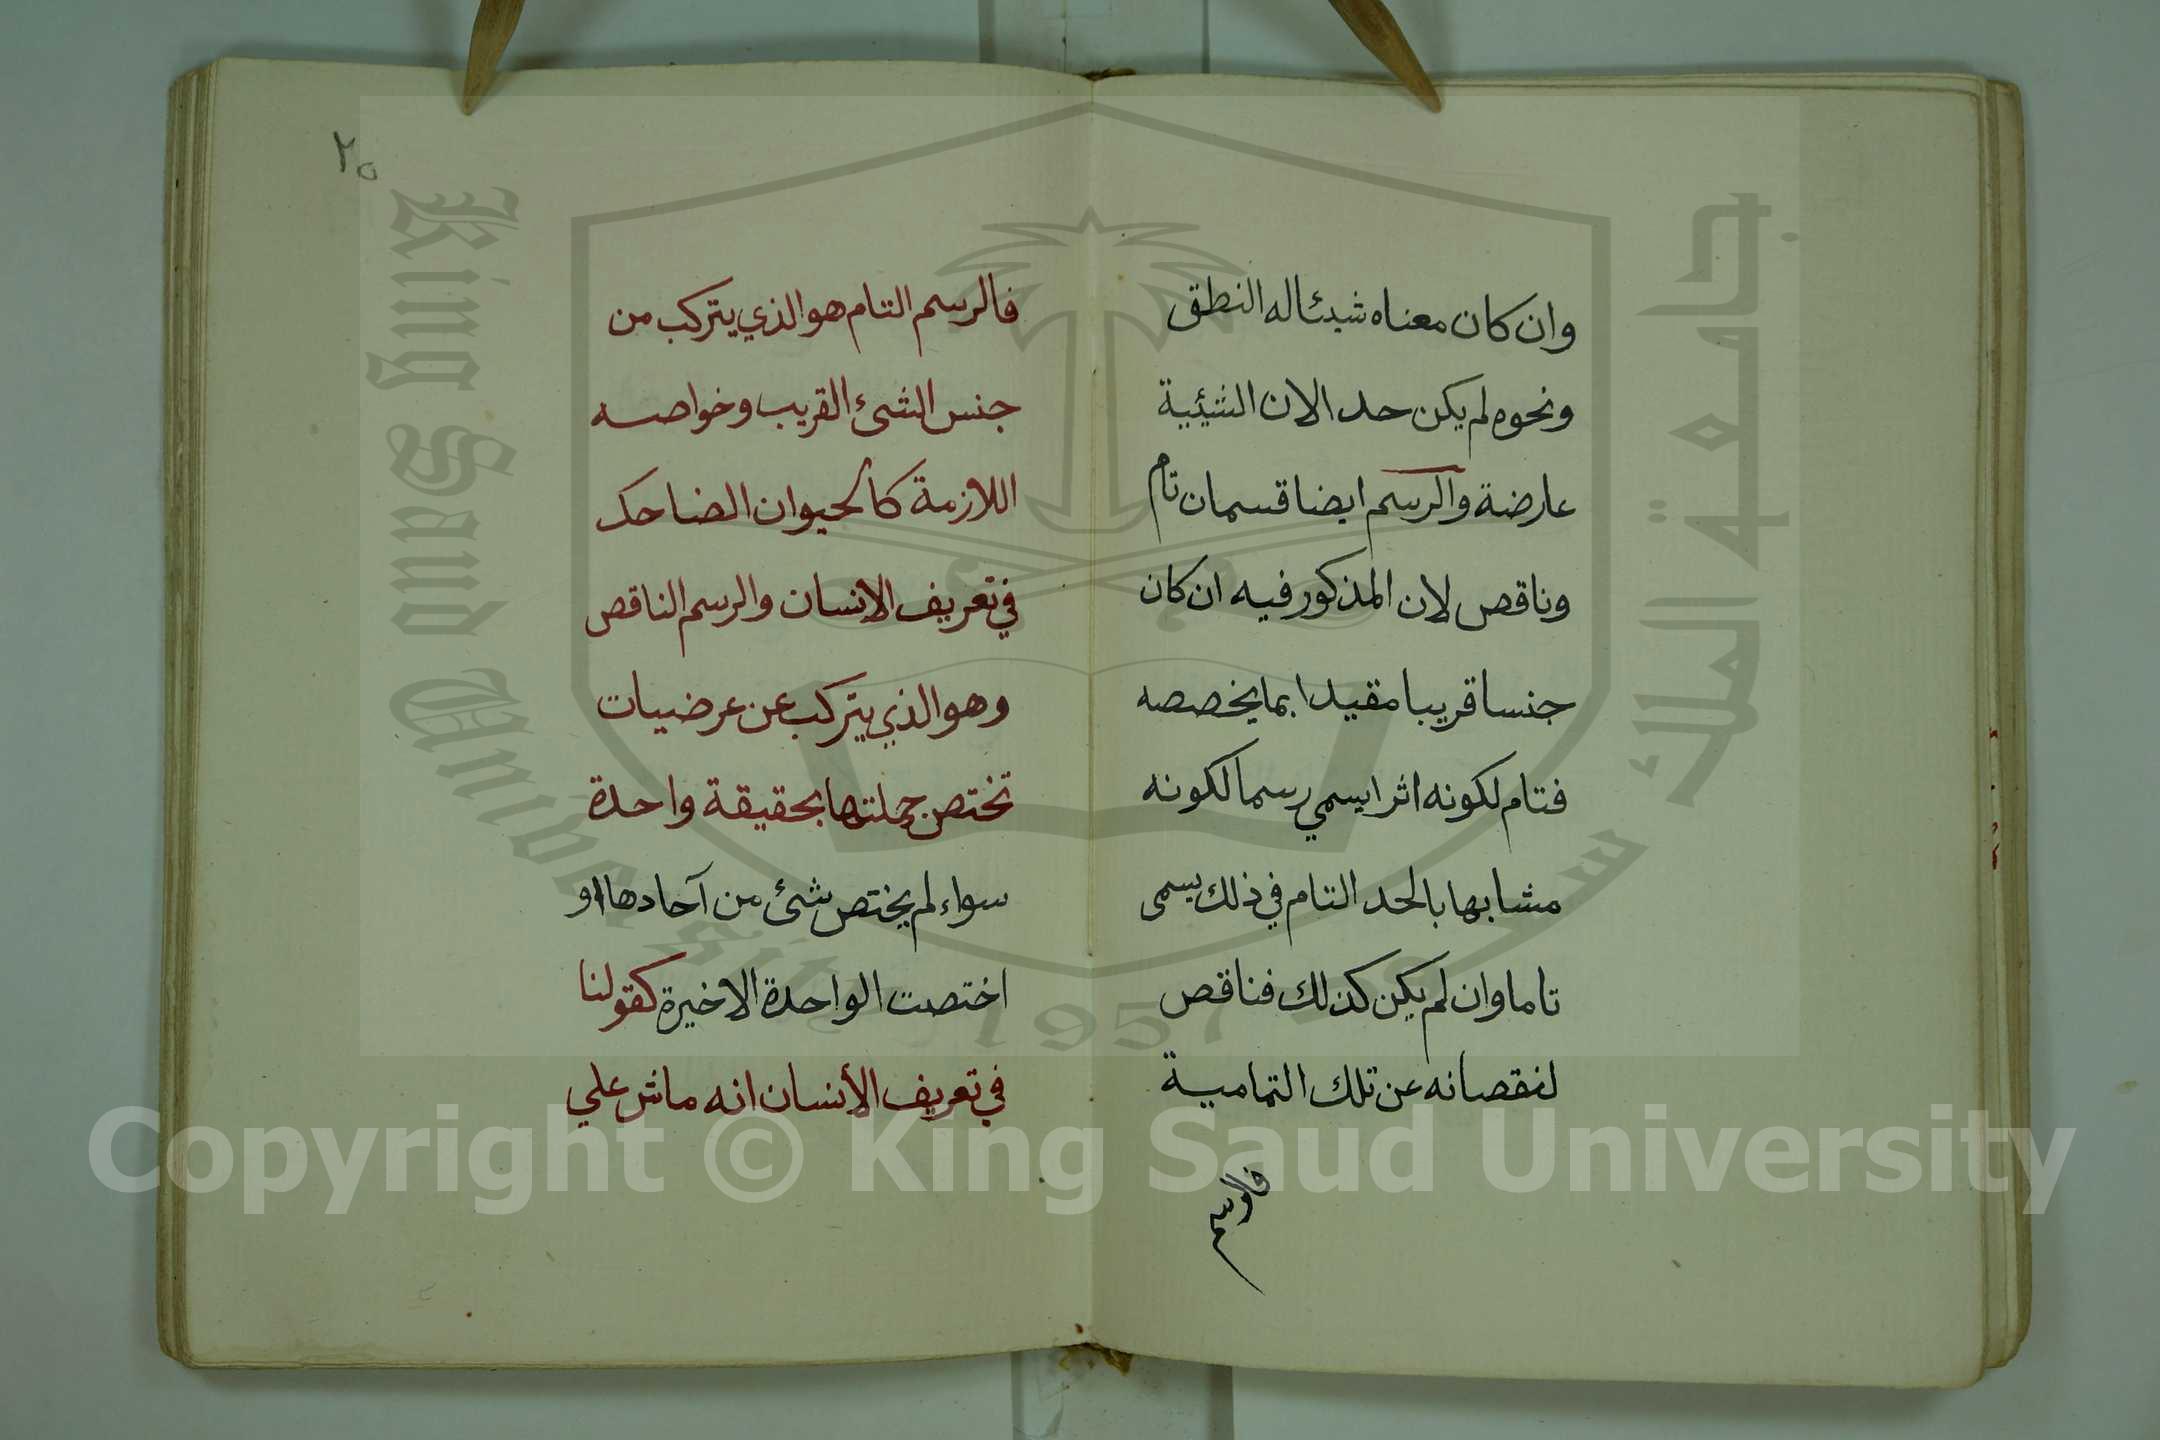 وان كان معناه شيئا له النطق
ونحوه لم يكن حد الان الشيئية
عارضة والرسم ايضا قسمان تام
وناقص لان المذكور فيه ان كان
جنسا قريبا مقيدا بما يخصصه
فتام لكونه اثرا يسمي رسما لكونه
مشابها بالحد التام في ذلك يسمى
تاما وان لم يكن كذلك فناقص
لنقصانه عن تلك التمامية
فالرسم
٢٥
فالرسم التام هو الذي يتركب من
جنس الشئ القريب وخواصه
اللازمة كالحيوان الضاحك
في تعريف الانسان والرسم الناقص
وهو الذي يتركب عن عرضيات
تختص جملتها بحقيقة واحدة
سواء لم يختص شئ من آحادها او
اختصت الواحدة الاخيرة كقولنا
في تعريف الأنسان انه ماش علي
King Saud University
جامعة الملك سعود
1957
Copyright © King Saud University